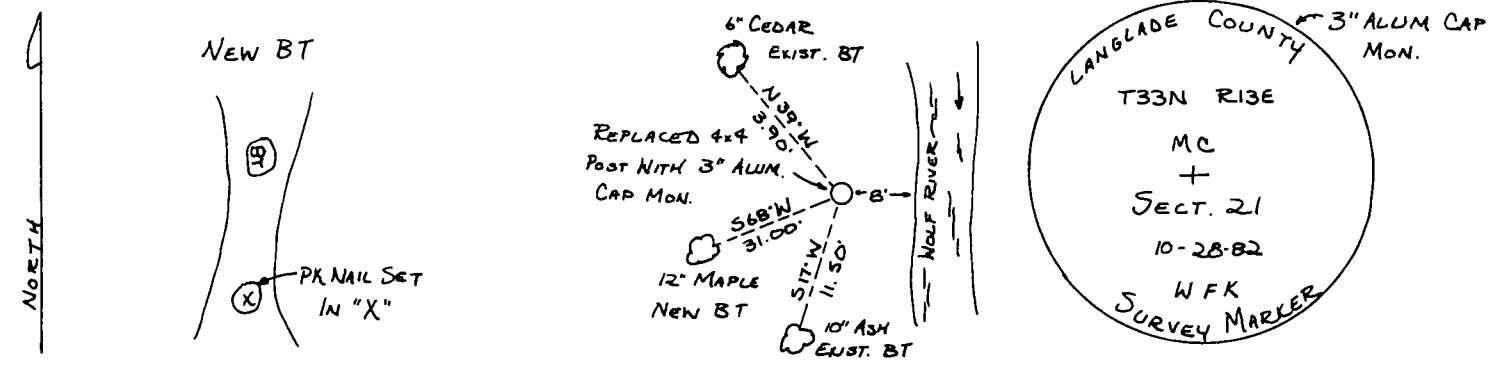 NORTH
NEW BT
BT
X
PK NAIL SET
IN "X"
6" CEDAR
EXIST. BT
N 39° W
3.90'
REPLACED 4x4
POST WITH 3" ALUM.
CAP MON.
8'
WOLF RIVER
S68°W
31.00'
12" MAPLE
NEW BT
S17°W
11.50'
10" ASH
EXIST. BT
3" ALUM CAP
MON.
LANGLADE COUNTY
T33N R13E
MC
+
SECT. 21
10-28-82
WFK
SURVEY MARKER